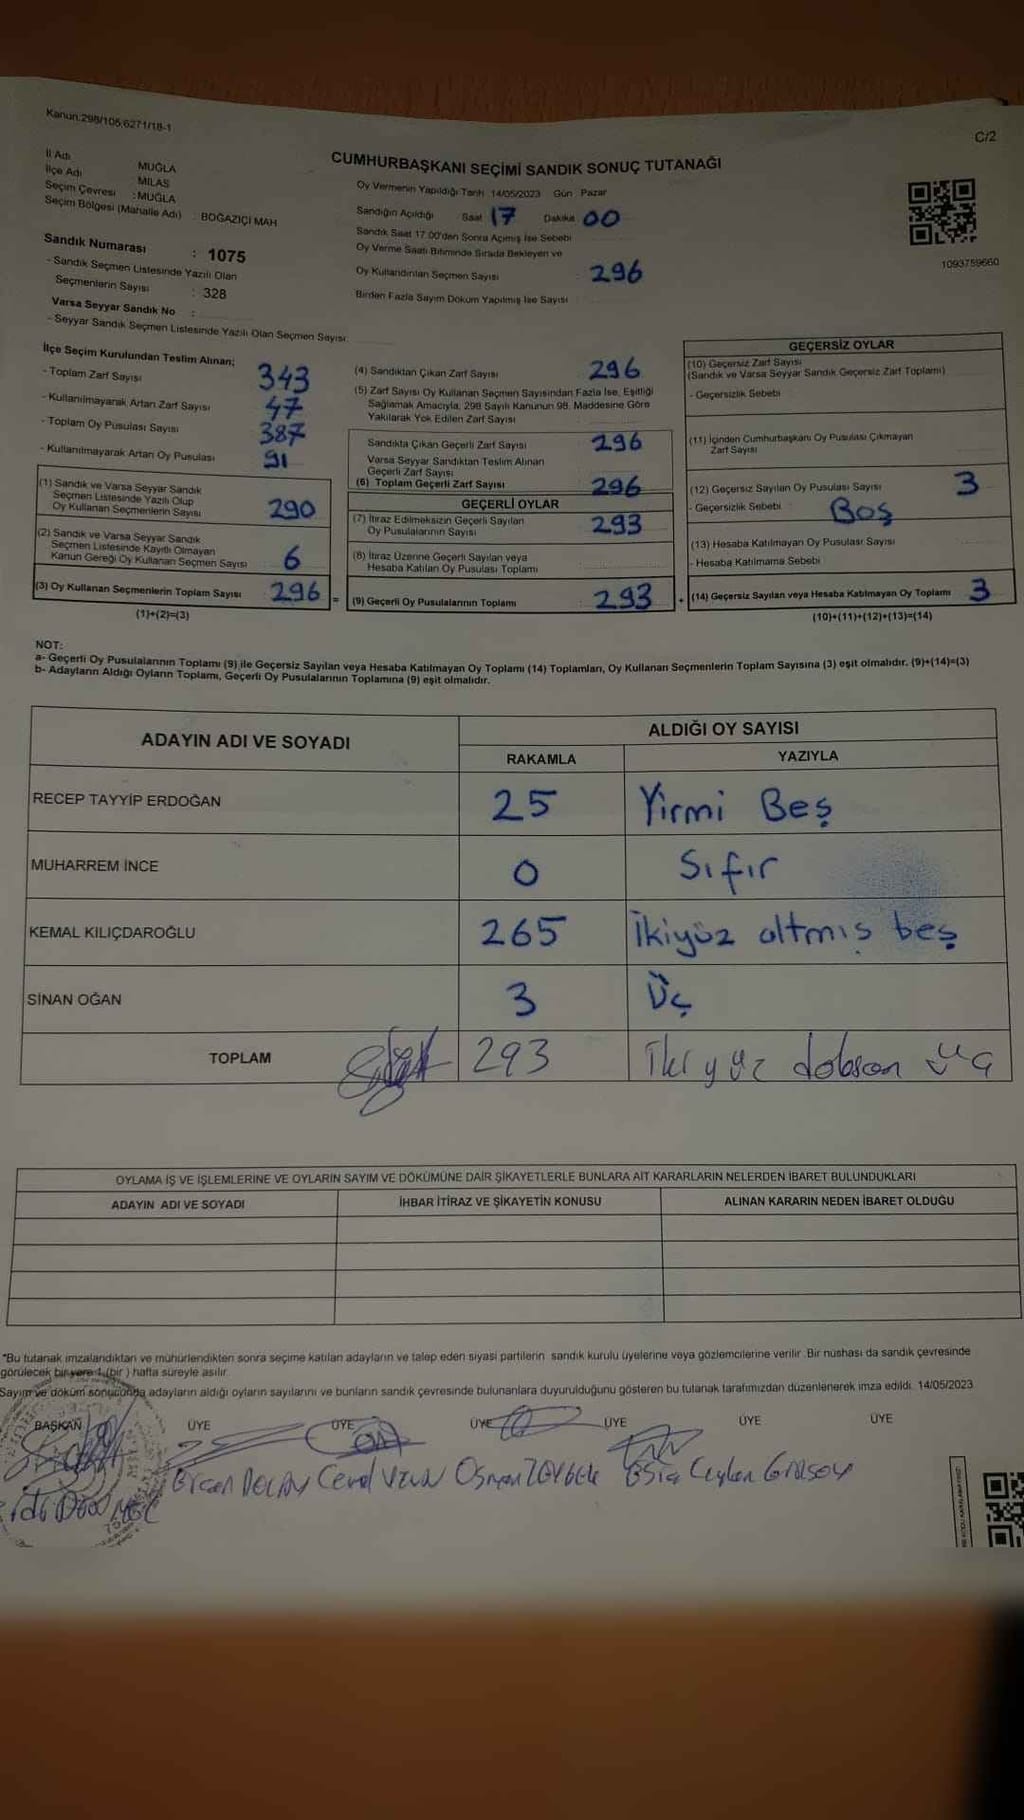 Kanun:298/105,6271/18-1
C/2
İl Adı MUĞLA
İlçe Adı MİLAS
Seçim Çevresi : MUĞLA
Seçim Bölgesi (Mahalle Adı) : BOĞAZİÇİ MAH
Sandık Numarası : 1075
- Sandık Seçmen Listesinde Yazılı Olan
Seçmenlerin Sayısı : 328
Varsa Seyyar Sandık No :
- Seyyar Sandık Seçmen Listesinde Yazılı Olan Seçmen Sayısı
CUMHURBAŞKANI SEÇİMİ SANDIK SONUÇ TUTANAĞI
Oy Vermenin Yapıldığı Tarih 14/05/2023 Gün Pazar
Sandığın Açıldığı Saat 17 Dakika 00
Sandık Saat 17.00'den Sonra Açılmış İse Sebebi
Oy Verme Saati Bitiminde Sırada Bekleyen ve
Oy Kullandırılan Seçmen Sayısı : 296
Birden Fazla Sayım Döküm Yapılmış İse Sayısı
1093759660
İlçe Seçim Kurulundan Teslim Alınan;
- Toplam Zarf Sayısı 343
- Kullanılmayarak Artan Zarf Sayısı 47
- Toplam Oy Pusulası Sayısı 387
- Kullanılmayarak Artan Oy Pusulası 91
(1) Sandık ve Varsa Seyyar Sandık
Seçmen Listesinde Yazılı Olup
Oy Kullanan Seçmenlerin Sayısı 290
(2) Sandık ve Varsa Seyyar Sandık
Seçmen Listesinde Kayıtlı Olmayan
Kanun Gereği Oy Kullanan Seçmen Sayısı 6
(3) Oy Kullanan Seçmenlerin Toplam Sayısı 296 =
(1)+(2)=(3)
(4) Sandıktan Çıkan Zarf Sayısı 296
(5) Zarf Sayısı Oy Kullanan Seçmen Sayısından Fazla İse, Eşitliği
Sağlamak Amacıyla, 298 Sayılı Kanunun 98. Maddesine Göre
Yakılarak Yok Edilen Zarf Sayısı
Sandıkta Çıkan Geçerli Zarf Sayısı 296
Varsa Seyyar Sandıktan Teslim Alınan
Geçerli Zarf Sayısı
(6) Toplam Geçerli Zarf Sayısı 296
GEÇERLİ OYLAR
(7) İtiraz Edilmeksizin Geçerli Sayılan
Oy Pusulalarının Sayısı : 293
(8) İtiraz Üzerine Geçerli Sayılan veya
Hesaba Katılan Oy Pusulası Toplamı
(9) Geçerli Oy Pusulalarının Toplamı : 293 +
GEÇERSİZ OYLAR
(10) Geçersiz Zarf Sayısı
(Sandık ve Varsa Seyyar Sandık Geçersiz Zarf Toplamı)
- Geçersizlik Sebebi
(11) İçinden Cumhurbaşkanı Oy Pusulası Çıkmayan
Zarf Sayısı
(12) Geçersiz Sayılan Oy Pusulası Sayısı 3
- Geçersizlik Sebebi Boş
(13) Hesaba Katılmayan Oy Pusulası Sayısı
- Hesaba Katılmama Sebebi
(14) Geçersiz Sayılan veya Hesaba Katılmayan Oy Toplamı 3
(10)+(11)+(12)+(13)=(14)
NOT:
a- Geçerli Oy Pusulalarının Toplamı (9) ile Geçersiz Sayılan veya Hesaba Katılmayan Oy Toplamı (14) Toplamları, Oy Kullanan Seçmenlerin Toplam Sayısına (3) eşit olmalıdır. (9)+(14)=(3)
b- Adayların Aldığı Oyların Toplamı, Geçerli Oy Pusulalarının Toplamına (9) eşit olmalıdır.
ADAYIN ADI VE SOYADI
ALDIĞI OY SAYISI
RAKAMLA YAZIYLA
RECEP TAYYİP ERDOĞAN 25 Yirmi Beş
MUHARREM İNCE 0 Sıfır
KEMAL KILIÇDAROĞLU 265 İkiyüz altmış beş
SİNAN OĞAN 3 Üç
TOPLAM 293 iki yüz doksan üç
OYLAMA İŞ VE İŞLEMLERİNE VE OYLARIN SAYIM VE DÖKÜMÜNE DAİR ŞİKAYETLERLE BUNLARA AİT KARARLARIN NELERDEN İBARET BULUNDUKLARI
ADAYIN ADI VE SOYADI İHBAR İTİRAZ VE ŞİKAYETİN KONUSU ALINAN KARARIN NEDEN İBARET OLDUĞU
*Bu tutanak imzalandıktan ve mühürlendikten sonra seçime katılan adayların ve talep eden siyasi partilerin sandık kurulu üyelerine veya gözlemcilerine verilir. Bir nüshası da sandık çevresinde
görülecek bir yere 1 (bir) hafta süreyle asılır
Sayım ve döküm sonucunda adayların aldığı oyların sayılarını ve bunların sandık çevresinde bulunanlara duyurulduğunu gösteren bu tutanak tarafımızdan düzenlenerek imza edildi. 14/05/2023
BAŞKAN ÜYE ÜYE ÜYE ÜYE ÜYE ÜYE
Ercan Cemal UZUN Osman ZEYBEK Ceylan GÜLSOY